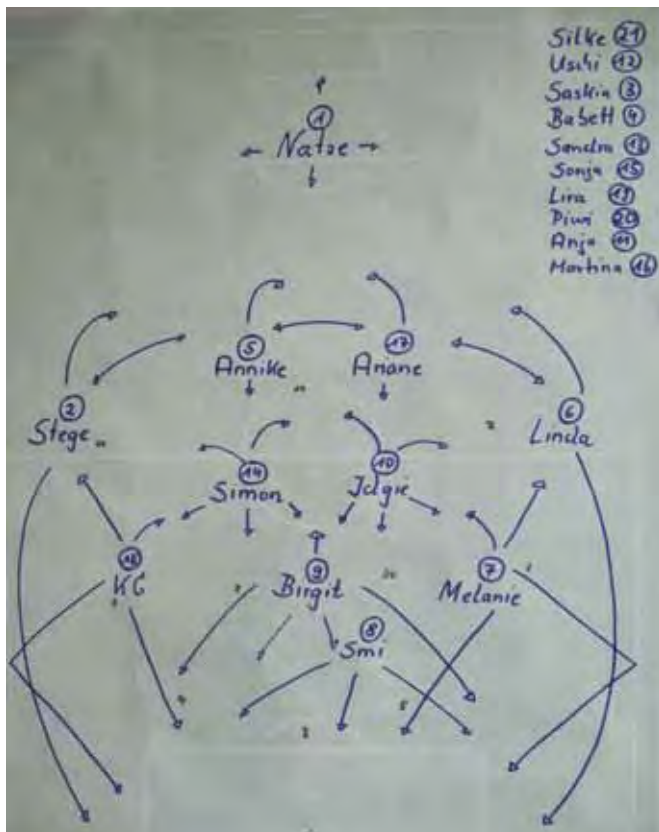 Silke 21
Uschi 12
Saskia 3
Babett 4
Sandra
Sonja 15
Lira 19
Piwi 20
Anja 11
Martina 16
1
Natze
5
Annike
17
Anane
2
Stege
6
Linda
14
Simon
10
KG
9
Birgit
7
Melanie
8
Smi